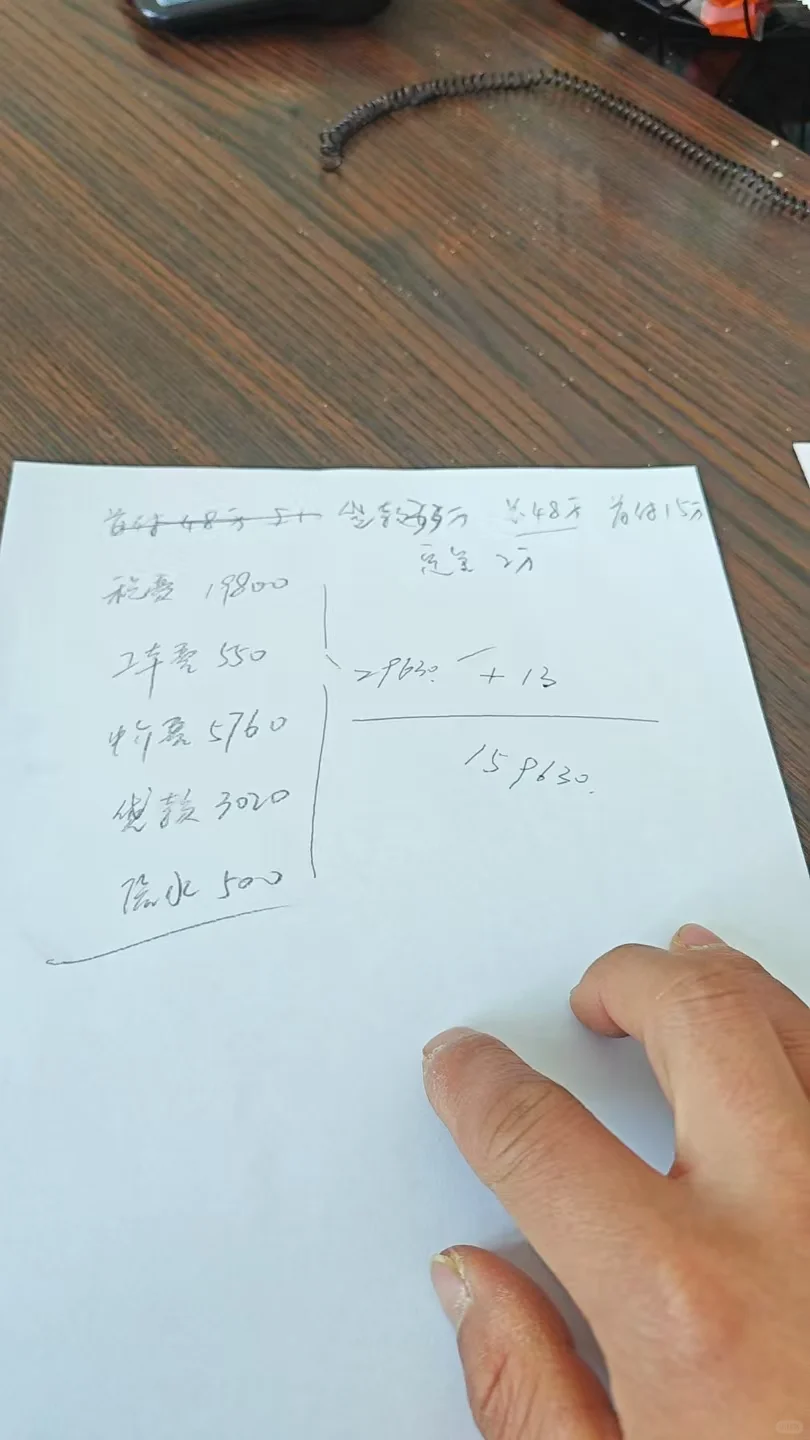 首付48万 贷款33万 总48万 首付15万
定金 2万
税费 19800
工本费 550
中介费 5760
贷款 3020
隐水 500
29630. + 13
159630.